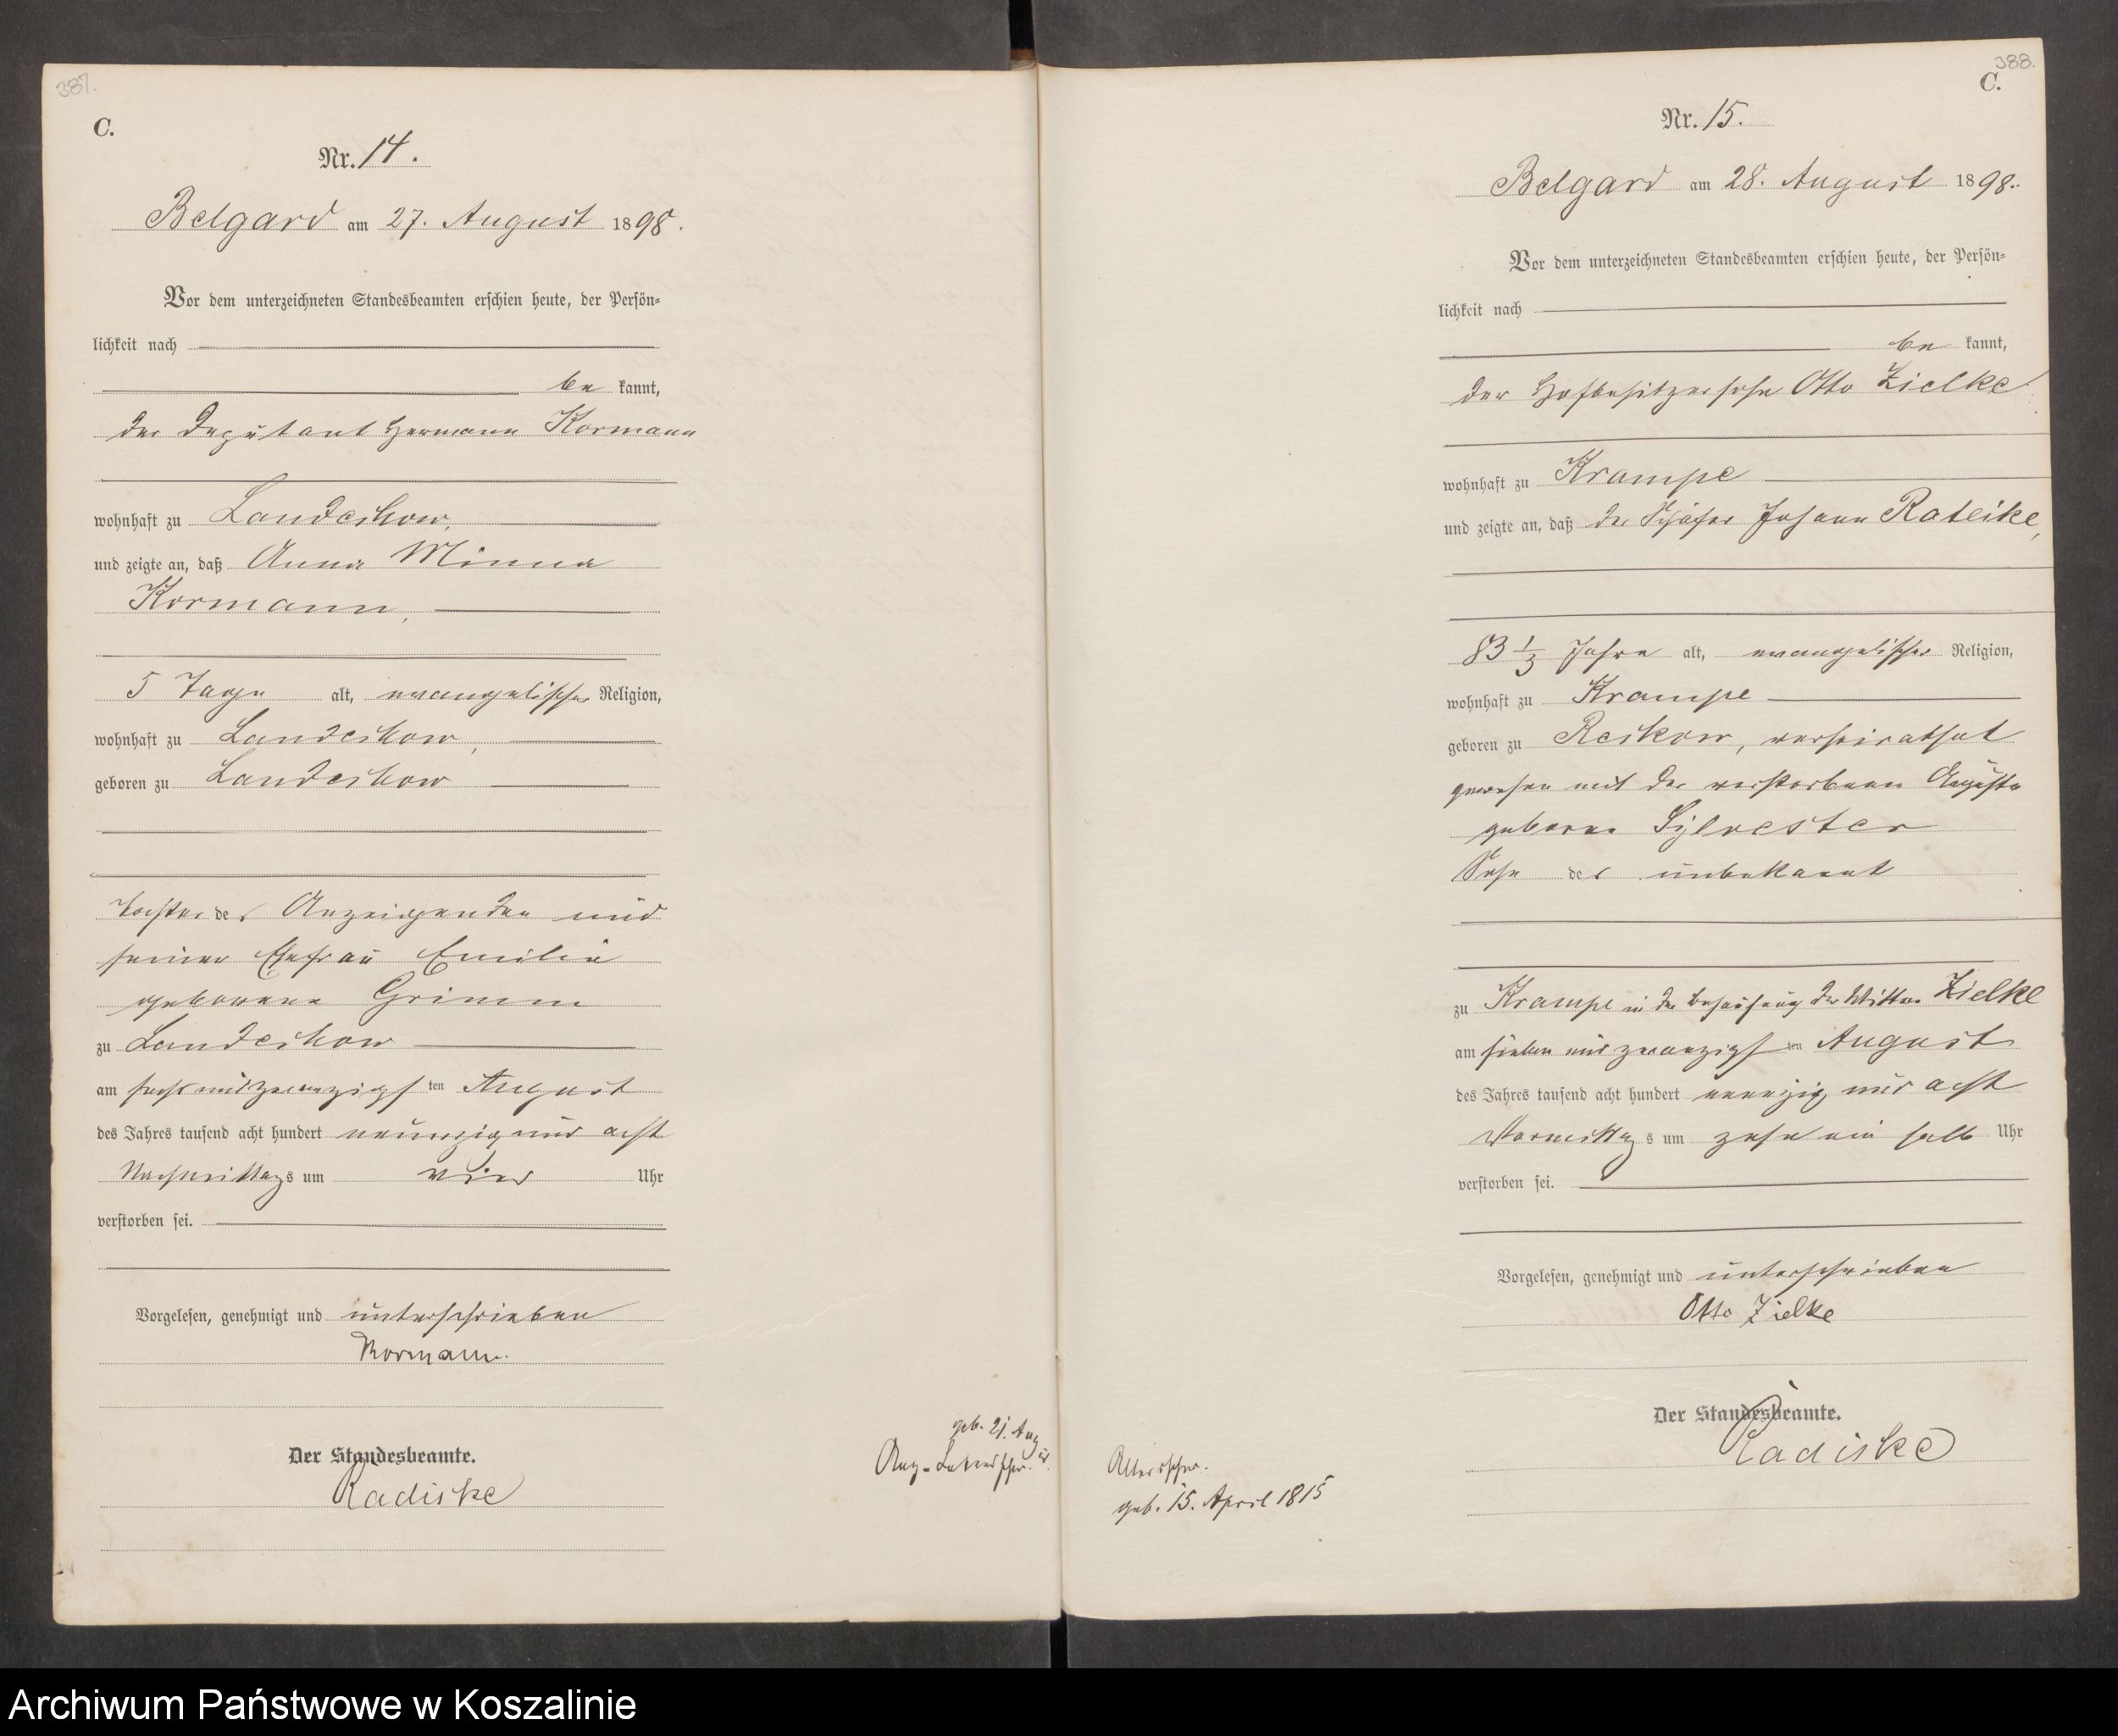 387.
C.
Nr. 14.
Belgard am 27. August 1898.
Vor dem unterzeichneten Standesbeamten erschien heute, der Persön-
lichkeit nach
be kannt,
der Deputant Hermann Kormann
wohnhaft zu Landechow,
und zeigte an, daß Anna Minna
Kormann,
5 Tage alt, evangelischer Religion,
wohnhaft zu Landechow,
geboren zu Landechow
Tochter des Anzeigenden und
seiner Ehefrau Emilie
geborene Grimm
zu Landechow
am sechsundzwanzigsten August
des Jahres tausend acht hundert neunzig und acht
Nachmittags um vier Uhr
verstorben sei.
Vorgelesen, genehmigt und unterschrieben
Kormann.
Der Standesbeamte.
Radiske
geb. 21. Aug
388.
C.
Nr. 15.
Belgard am 28. August 1898.
Vor dem unterzeichneten Standesbeamten erschien heute, der Persön-
lichkeit nach
be kannt,
der Hofbesitzersohn Otto Zielke
wohnhaft zu Krampe
und zeigte an, daß der Schäfer Johann Rateike,
83 1/3 Jahre alt, evangelischer Religion,
wohnhaft zu Krampe
geboren zu Reskow, verheirathet
gewesen mit der verstorbenen Auguste
geborne Sylvester
Sohn des unbekannt
zu Krampe in der Behausung der Wittwe Zielke
am sieben und zwanzigsten August
des Jahres tausend acht hundert neunzig und acht
Vormittags um zehn ein halb Uhr
verstorben sei.
Vorgelesen, genehmigt und unterschrieben
Otto Zielke
Der Standesbeamte.
Radiske
Altersschw.
geb. 15. April 1815
Archiwum Państwowe w Koszalinie